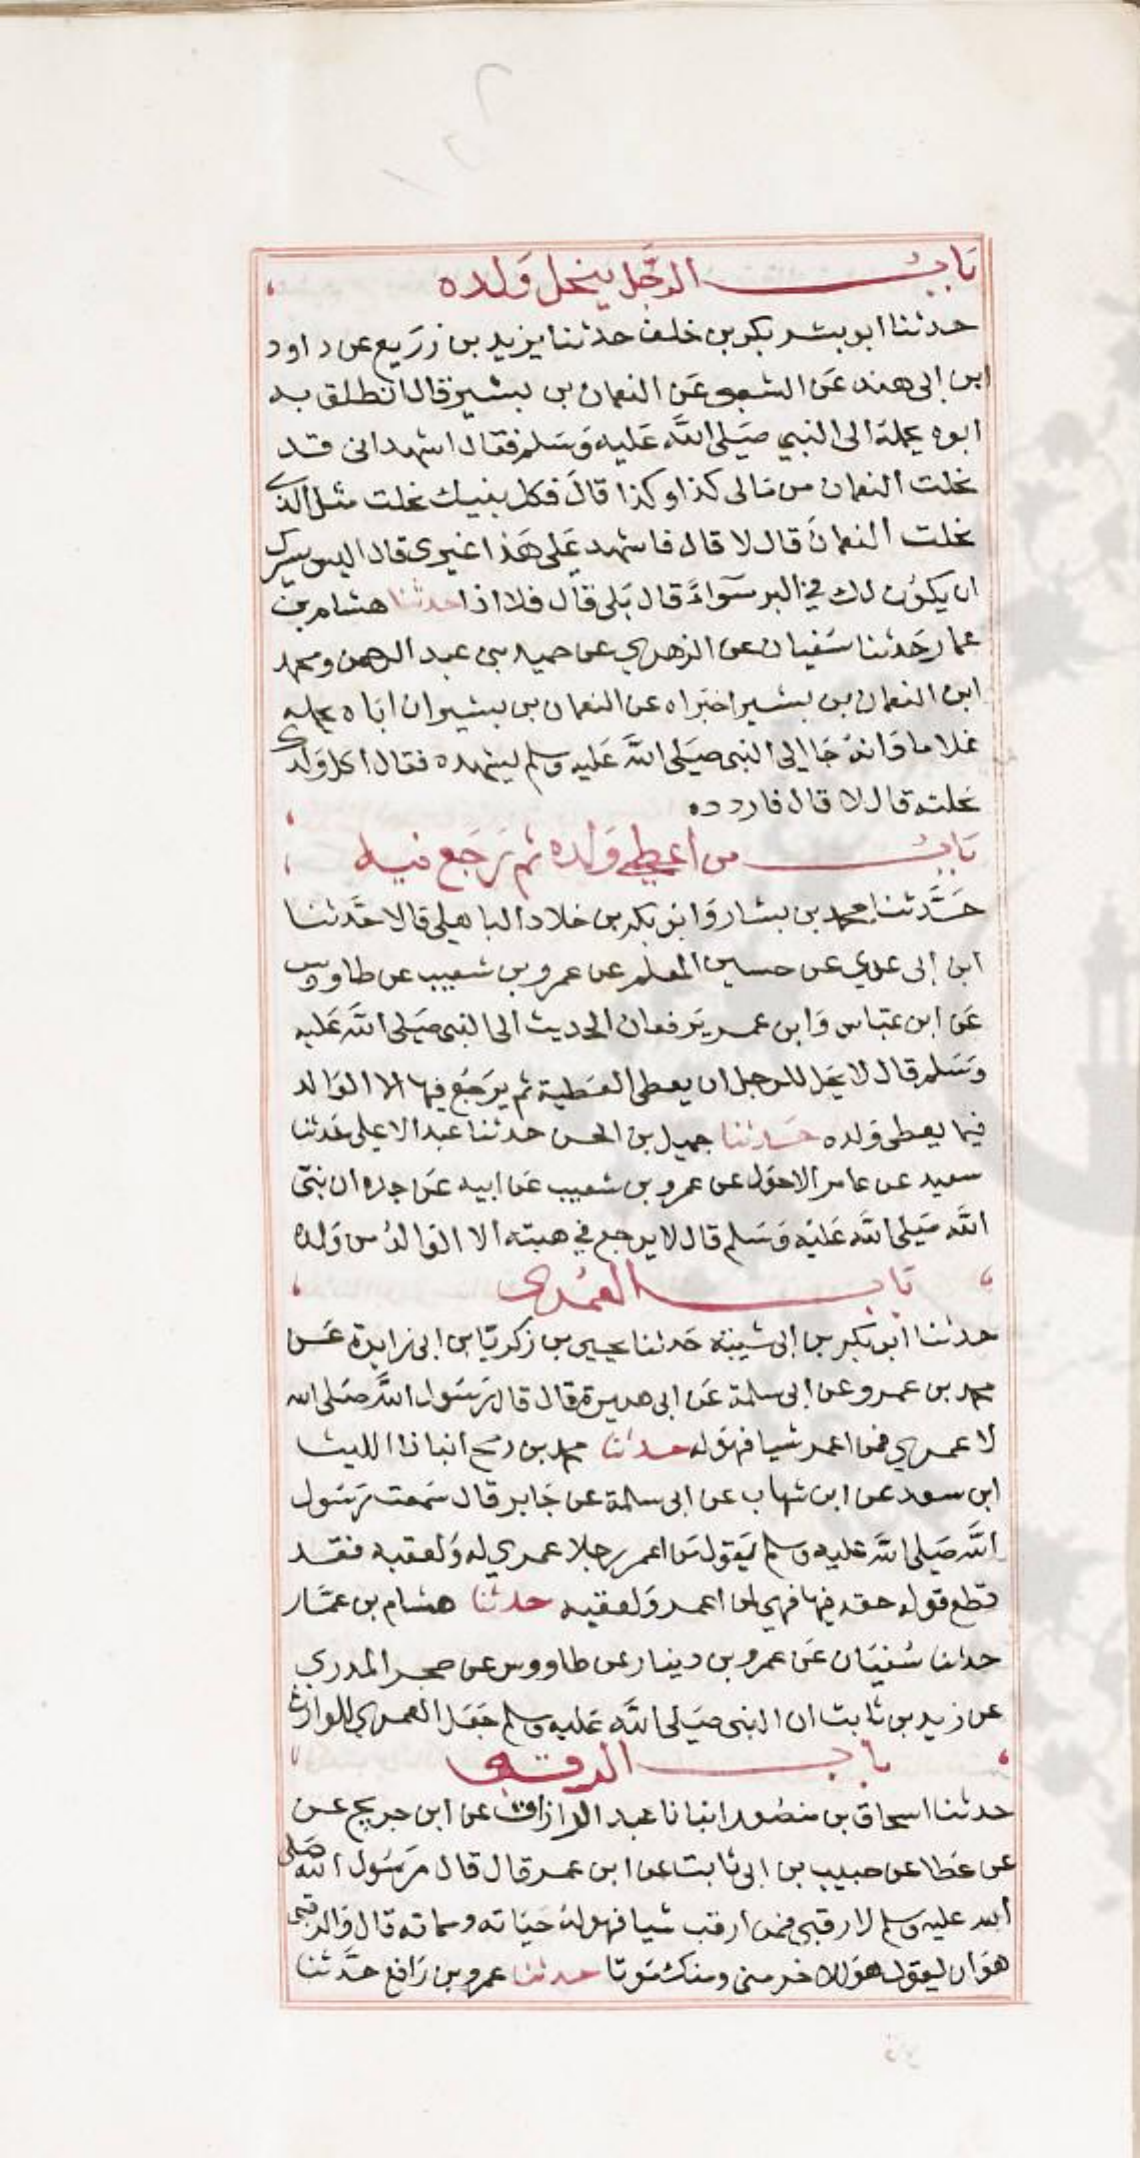 باب الرجل ينحل ولده
حدثنا ابو بشر بكر بن خلف حدثنا يزيد بن زريع عن داود
ابن ابي هند عن الشعبي عن النعمان بن بشير قال انطلق به
ابوه يحمله الى النبي صلى الله عليه وسلم فقال اشهد اني قد
نحلت النعمان من مالي كذا وكذا قال فكل بنيك نحلت مثل الذي
نحلت النعمان قال لا قال فاشهد على هذا غيري قال اليس يسرك
ان يكون لك في البر سواء قال بلى قال فلا اذا حدثنا هشام بن
عمار حدثنا سفيان عن الزهري عن حميد بن عبد الرحمن ومحمد
ابن النعمان بن بشير اخبراه عن النعمان بن بشير ان اباه نحله
غلاما وانه جا الى النبي صلى الله عليه وسلم ليشهده فقال اكل ولدك
نحلته قال لا قال فاردده
باب من اعطى ولده ثم رجع فيه
حدثنا محمد بن بشار وابو بكر بن خلاد الباهلي قالا حدثنا
ابن ابي عدي عن حسين المعلم عن عمرو بن شعيب عن طاووس
عن ابن عباس وابن عمر يرفعان الحديث الى النبي صلى الله عليه
وسلم قال لا يحل للرجل ان يعطي العطية ثم يرجع فيها الا الوالد
فيما يعطي ولده حدثنا جميل بن الحسن حدثنا عبد الاعلى حدثنا
سعيد عن عامر الاحول عن عمرو بن شعيب عن ابيه عن جده ان نبي
الله صلى الله عليه وسلم قال لا يرجع في هبته الا الوالد من ولده
باب العمرى
حدثنا ابو بكر بن ابي شيبة حدثنا يحيى بن زكريا بن ابي زايدة عن
محمد بن عمرو عن ابي سلمة عن ابي هريرة قال قال رسول الله صلى الله
لا عمرى فمن اعمر شيا فهو له حدثنا محمد بن رمح انبانا الليث
ابن سعد عن ابن شهاب عن ابي سلمة عن جابر قال سمعت رسول
الله صلى الله عليه وسلم يقول من اعمر رجلا عمرى له ولعقبه فقد
قطع قوله حقه فيها فهي لمن اعمر ولعقبه حدثنا هشام بن عمار
حدثنا سفيان عن عمرو بن دينار عن طاووس عن حجر المدري
عن زيد بن ثابت ان النبي صلى الله عليه وسلم جعل العمرى للوارث
باب الرقبى
حدثنا اسحاق بن منصور انبانا عبد الرزاق عن ابن جريج عن
عن عطا عن حبيب بن ابي ثابت عن ابن عمر قال قال رسول الله صلى
الله عليه وسلم لا رقبى فمن ارقب شيا فهو له حياته ومماته قال والرقبى
هو ان يقول هو للاخر مني ومنك موتا حدثنا عمرو بن رافع حدثنا